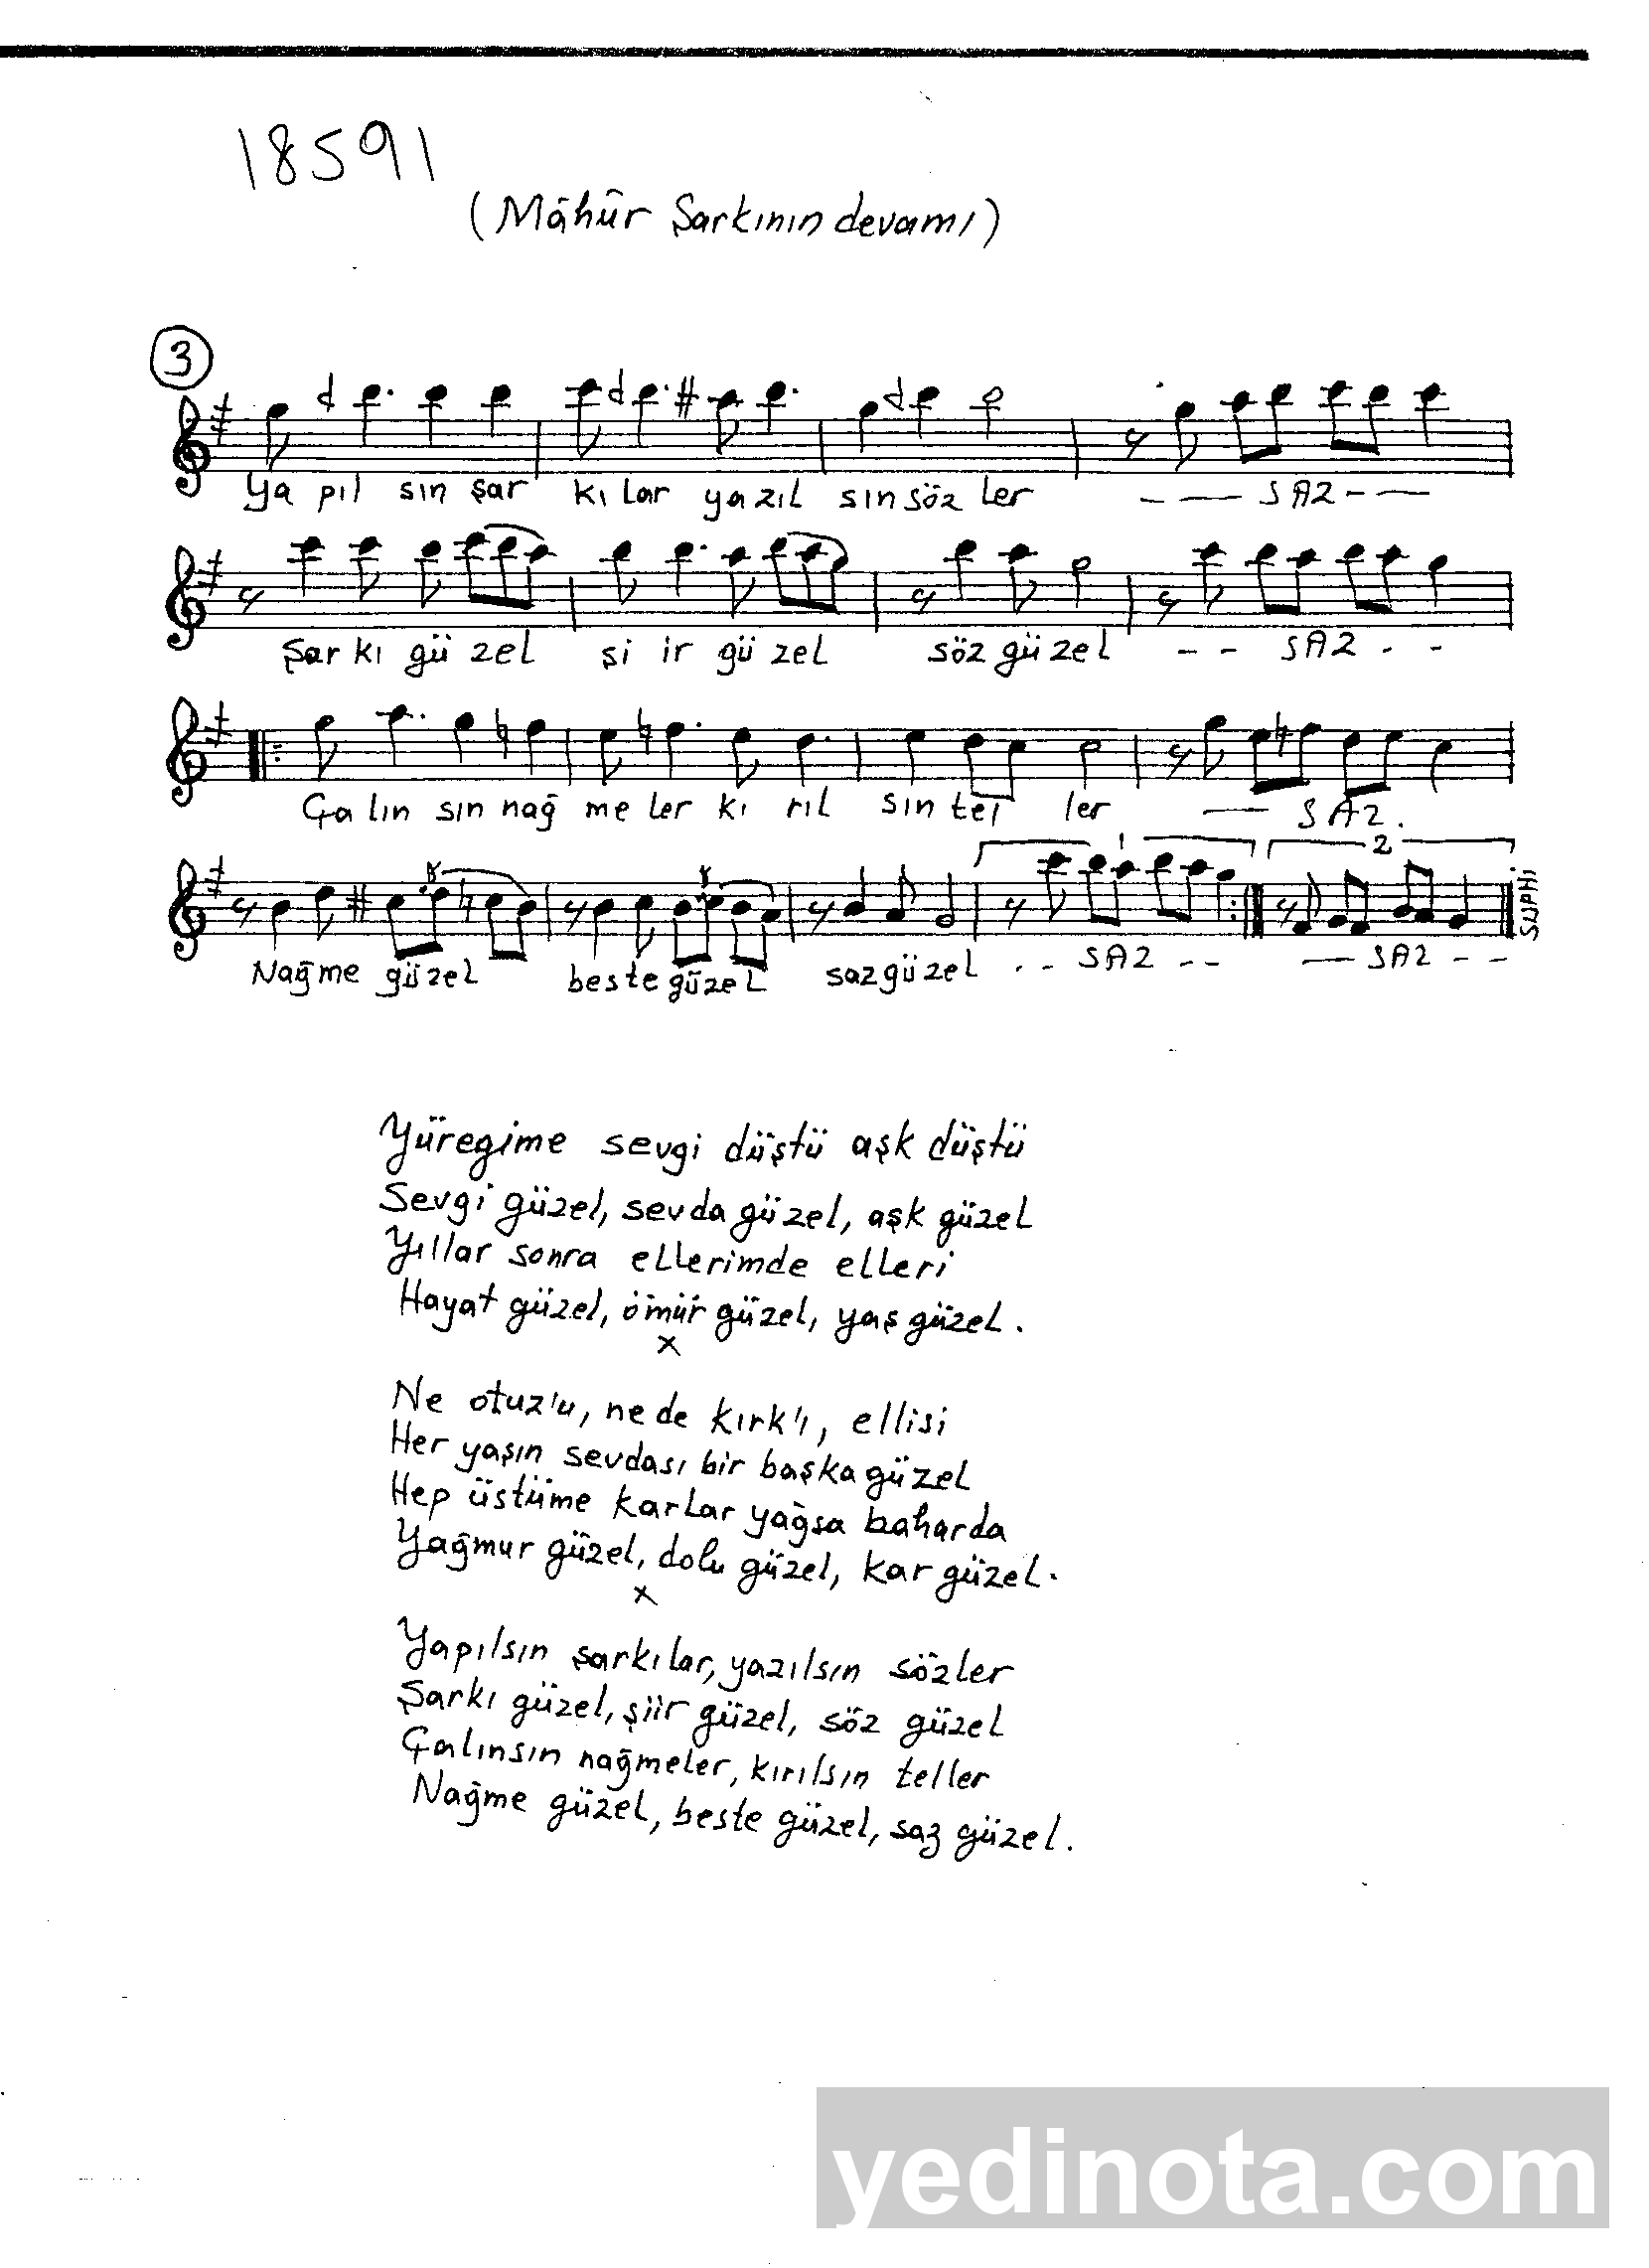 18591
(Mâhûr Şarkının devamı)
3
Ya pıl sın şar kı lar ya zıl sın söz ler - - SAZ - -
Şar kı gü zel şi ir gü zel söz gü zel - - SAZ - -
Ça lın sın nağ me ler kı rıl sın tel ler - SAZ.
1 2
Nağme güzel beste güzel saz güzel - - SAZ - - - SAZ - -
SUPHİ
Yüregime sevgi düştü aşk düştü
Sevgi güzel, sevda güzel, aşk güzel
Yıllar sonra ellerimde elleri
Hayat güzel, ömür güzel, yaş güzel.
x
Ne otuz'u, ne de kırk'ı, ellisi
Her yaşın sevdası bir başka güzel
Hep üstüme karlar yağsa baharda
Yağmur güzel, dolu güzel, kar güzel.
x
Yapılsın şarkılar, yazılsın sözler
Şarkı güzel, şiir güzel, söz güzel
Çalınsın nağmeler, kırılsın teller
Nağme güzel, beste güzel, saz güzel.
yedinota.com